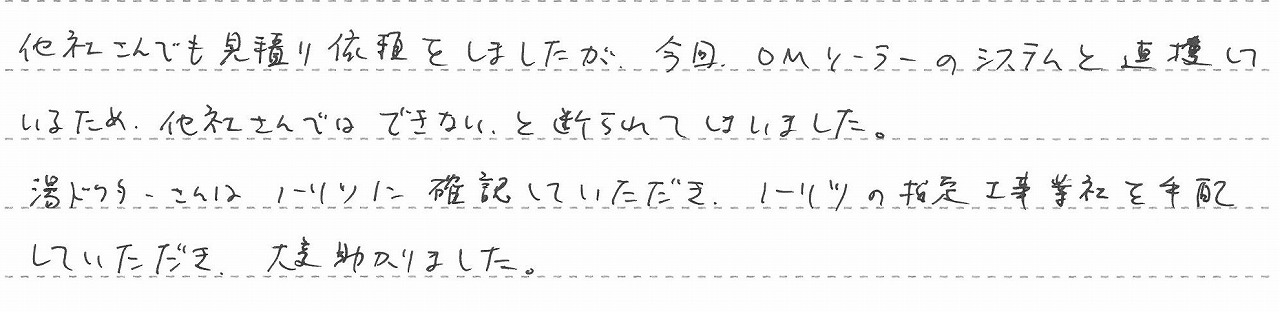 他社さんでも見積り依頼をしましたが、今回、OMソーラーのシステムと直接して
いるため、他社さんではできない、と断られてしまいました。
湯ドクターさんは ノーリツに確認していただき、ノーリツの指定工事業社を手配
していただき、大変助かりました。